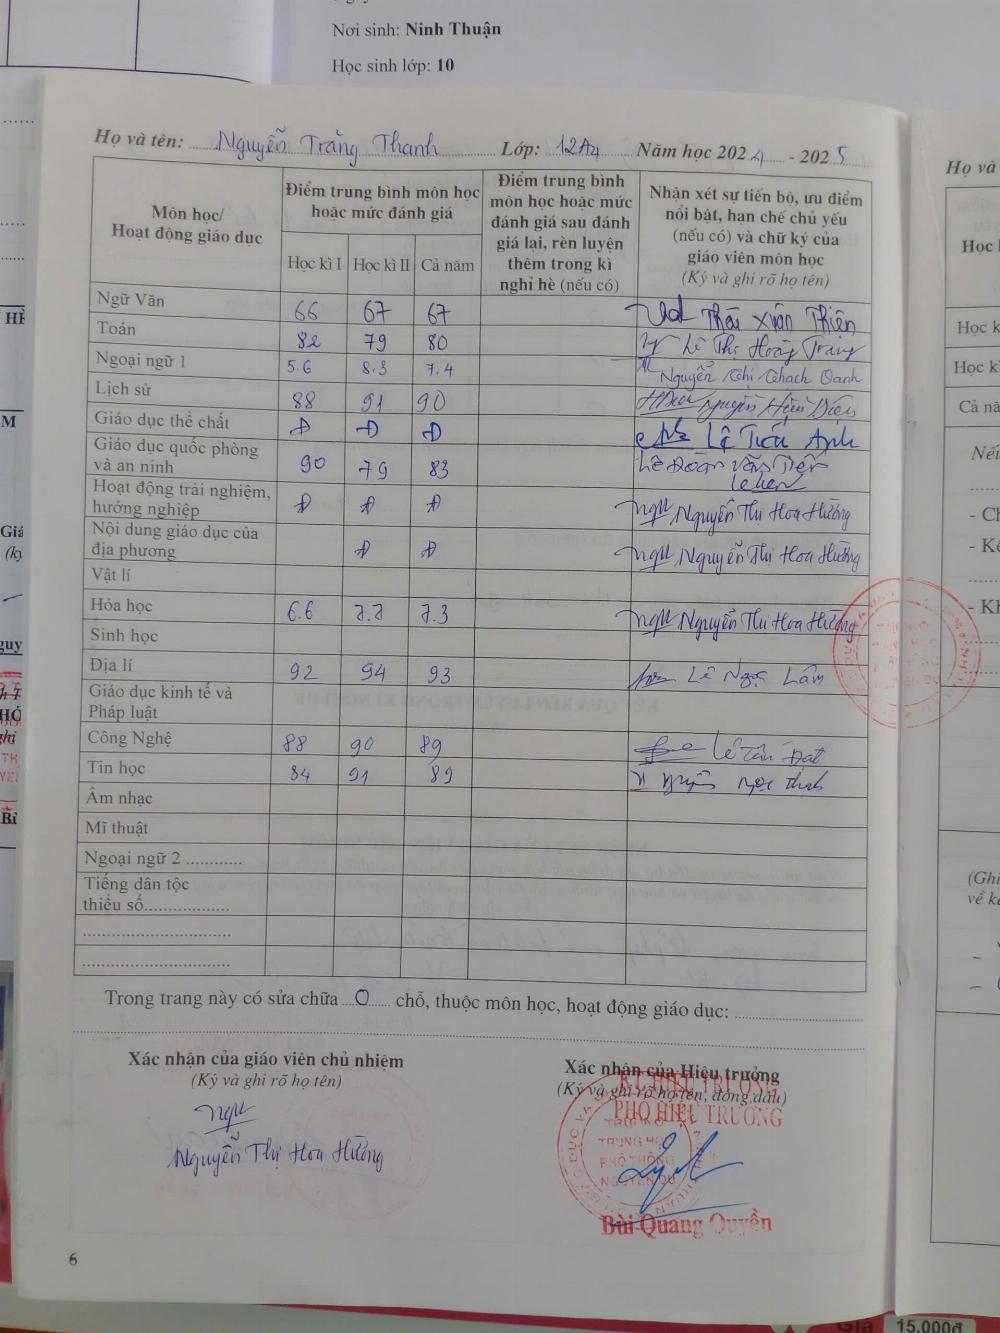 Nơi sinh: Ninh Thuận
Học sinh lớp: 10
Họ và tên: Nguyễn Trăng Thanh Lớp: 12A4 Năm học 2024 - 2025
Môn học/ Hoạt động giáo dục
Điểm trung bình môn học hoặc mức đánh giá
Học kì I Học kì II Cả năm
Điểm trung bình môn học hoặc mức đánh giá sau đánh giá lại, rèn luyện thêm trong kì nghỉ hè (nếu có)
Nhận xét sự tiến bộ, ưu điểm nổi bật, hạn chế chủ yếu (nếu có) và chữ ký của giáo viên môn học
(Ký và ghi rõ họ tên)
Ngữ Văn 66 67 67 Thái Xuân Thiện
Toán 82 79 80 Lê Thị Hoàng Trang
Ngoại ngữ 1 5.6 8.3 7.4 Nguyễn Thị Thạch Oanh
Lịch sử 88 91 90 Nguyễn
Giáo dục thể chất Đ Đ Đ Lê Tiếu Anh
Giáo dục quốc phòng và an ninh 90 79 83 Lê Đoàn Văn Tiến
Hoạt động trải nghiệm, hướng nghiệp Đ Đ Đ Nguyễn Thị Hoa Hường
Nội dung giáo dục của địa phương Đ Đ Nguyễn Thị Hoa Hường
Vật lí
Hóa học 6.6 7.7 7.3 Nguyễn Thị Hoa Hường
Sinh học
Địa lí 92 94 93 Lê Ngọc Lâm
Giáo dục kinh tế và Pháp luật
Công Nghệ 88 90 89 Lê Tấn Đạt
Tin học 84 91 89 Nguyễn Ngọc
Âm nhạc
Mĩ thuật
Ngoại ngữ 2 ............
Tiếng dân tộc thiểu số..................
Trong trang này có sửa chữa 0 chỗ, thuộc môn học, hoạt động giáo dục:
Xác nhận của giáo viên chủ nhiệm
(Ký và ghi rõ họ tên)
Nguyễn Thị Hoa Hường
Xác nhận của Hiệu trưởng
(Ký và ghi rõ họ tên, đóng dấu)
KT.HIỆU TRƯỞNG
PHÓ HIỆU TRƯỞNG
TRUNG HỌC
PHỔ THÔNG
NGUYỄN DU
Bùi Quang Quyền
6
Giá 15.000đ